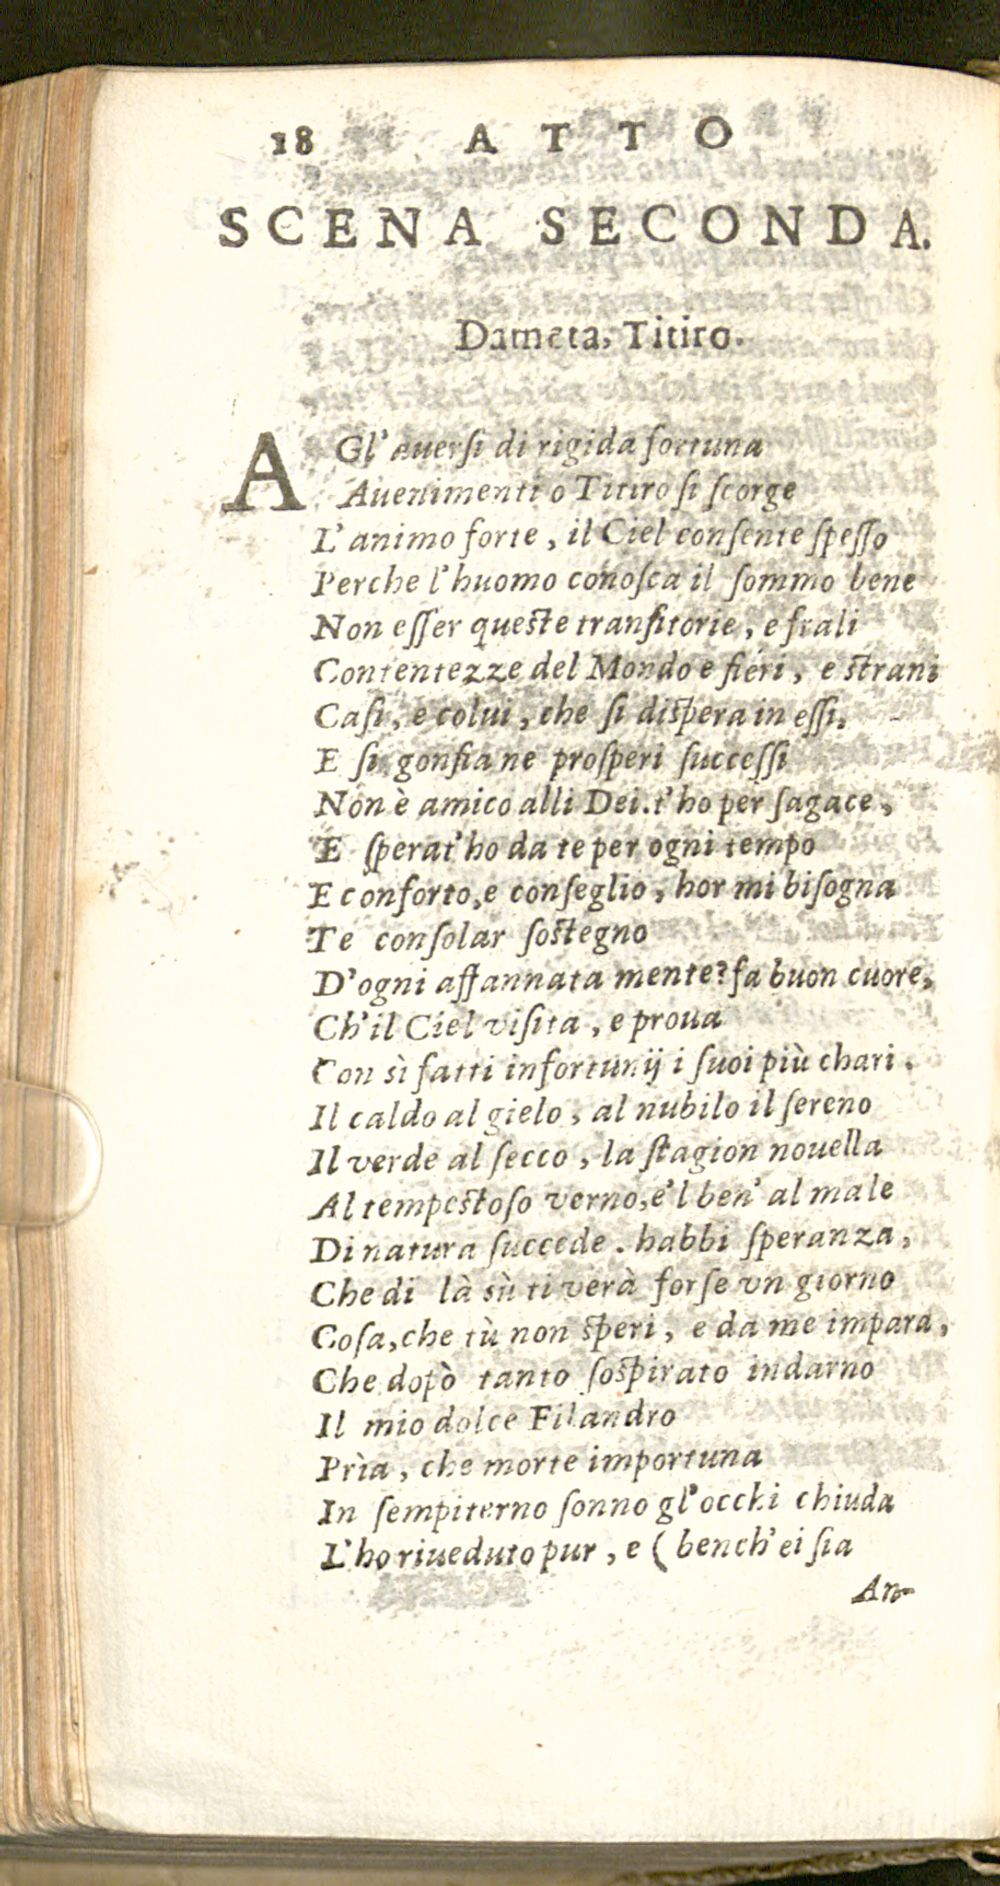 18 ATTO
SCENA SECONDA.
Dameta, Titiro.
AGl' auerſi di rigida fortuna
Auenimenti o Titiro ſi ſcorge
L'animo forte, il Ciel conſente ſpeſſo
Perche l'huomo conoſca il ſommo bene
Non eſſer queſte tranſitorie, e frali
Contentezze del Mondo e fieri, e ſtrani
Caſi, e colui, che ſi diſpera in eſſi.
E ſi gonfia ne proſperi ſucceſſi
Non è amico alli Dei. t'ho per ſagace,
E ſperat'ho da te per ogni tempo
E conforto, e conſeglio, hor mi biſogna
Te conſolar ſoſtegno
D'ogni affannata mente? fa buon cuore,
Ch'il Ciel viſita, e proua
Con sì fatti infortunij i ſuoi più chari.
Il caldo al gielo, al nubilo il ſereno
Il verde al ſecco, la ſtagion nouella
Al tempeſtoſo verno, e'l ben' al male
Di natura ſuccede. habbi ſperanza,
Che di là sù ti verà forſe vn giorno
Coſa, che tù non ſperi, e da me impara,
Che dopò tanto ſoſpirato indarno
Il mio dolce Filandro
Prìa, che morte importuna
In ſempiterno ſonno gl'occhi chiuda
L'ho riueduto pur, e (bench'ei ſia
An-